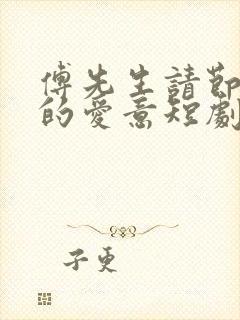 傅先生請節
的愛意短劇
子更